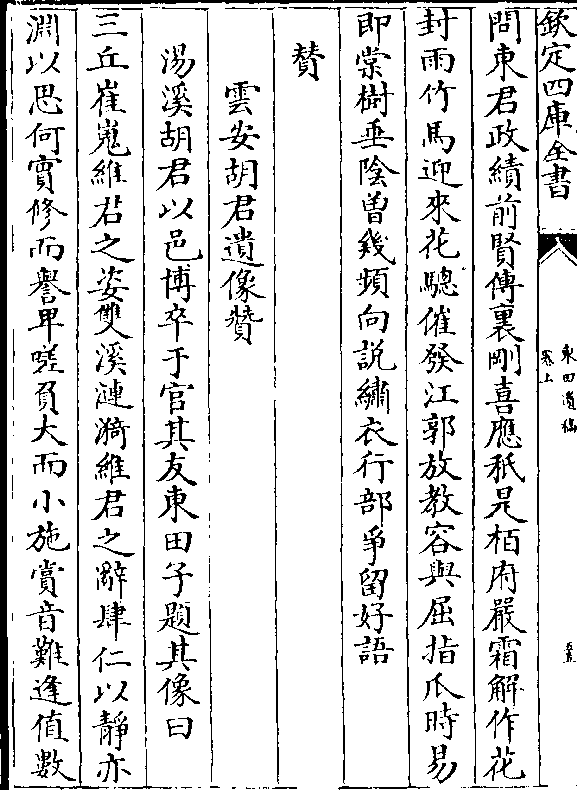 欽定四庫全書
東田遺稿
卷上
至
問東君政績前賢傳裏剛喜應秪是栢府嚴霜解作花
封雨竹馬迎來花驄催發江郭放教容與屈指爪時易
即棠樹垂陰曽幾頻向説繡衣行部爭留好語
贊
雲安胡君遺像贊
湯溪胡君以邑博卒于官其友東田子題其像曰
三丘崔嵬維君之姿雙溪漣漪維君之辭肆仁以靜亦
淵以思何實修而譽卑嗟負大而小施賞音難逢值數